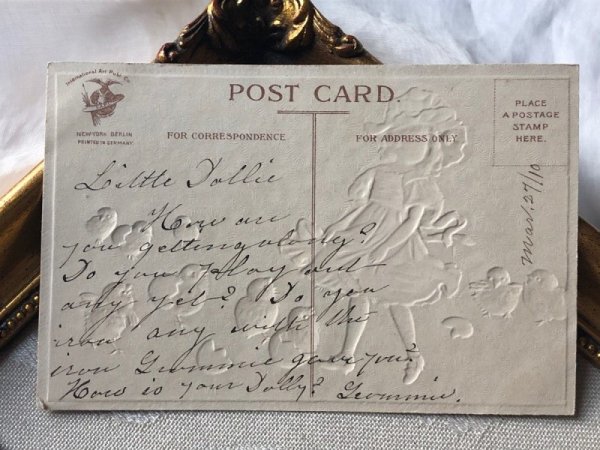 International Art Publ. Co.
NEW-YORK BERLIN
PRINTED IN GERMANY.
POST CARD.
FOR CORRESPONDENCE
FOR ADDRESS ONLY
PLACE
A POSTAGE
STAMP
HERE.
Mar. 27/10
Little Dollie
How are
you getting along?
Do you play out
any yet? Do you
iron any with the
iron Grommie gave you?
How is your Dolly? Grommie.